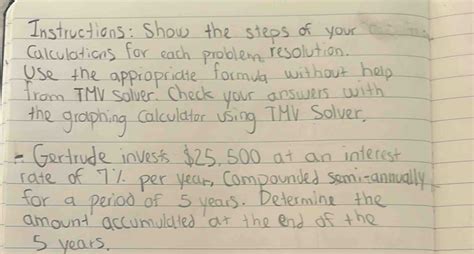 Instructions: Show the steps of your
Calculations for each problem resolution.
Use the appropriate formula without help
from TMV solver. Check your answers with
the graphing calculator using TMV Solver.
- Gertrude invests $25,500 at an interest
rate of 7% per year, compounded semi-annually
for a period of 5 years. Determine the
amount accumulated at the end of the
5 years.